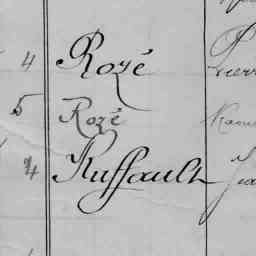 4 Rozé
5 Rozé
4 Ruffault